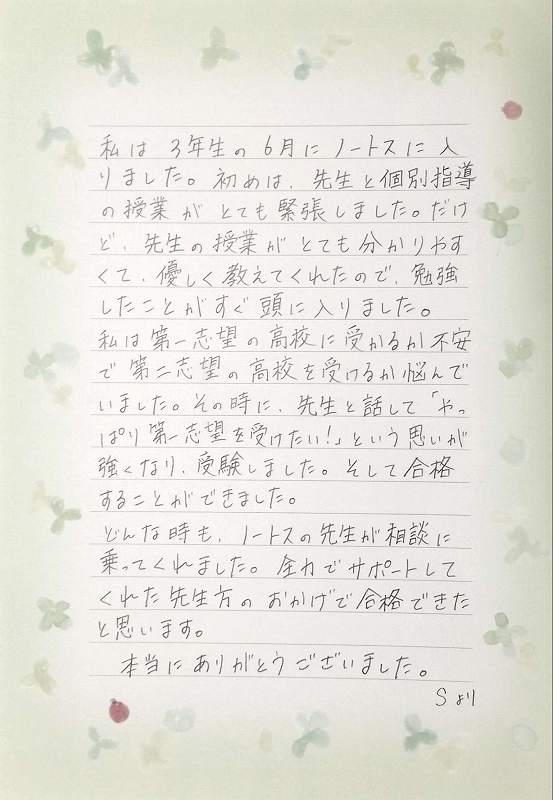 私は3年生の6月にノートスに入
りました。初めは、先生と個別指導
の授業がとても緊張しました。だけ
ど、先生の授業がとても分かりやす
くて、優しく教えてくれたので、勉強
したことがすぐ頭に入りました。
私は第一志望の高校に受かるか不安
で第二志望の高校を受けるか悩んで
いました。その時に、先生と話して「やっ
ぱり第一志望を受けたい!」という思いが
強くなり、受験しました。そして合格
することができました。
どんな時も、ノートスの先生が相談に
乗ってくれました。全力でサポートして
くれた先生方のおかげで合格できた
と思います。
本当にありがとうございました。
Sより